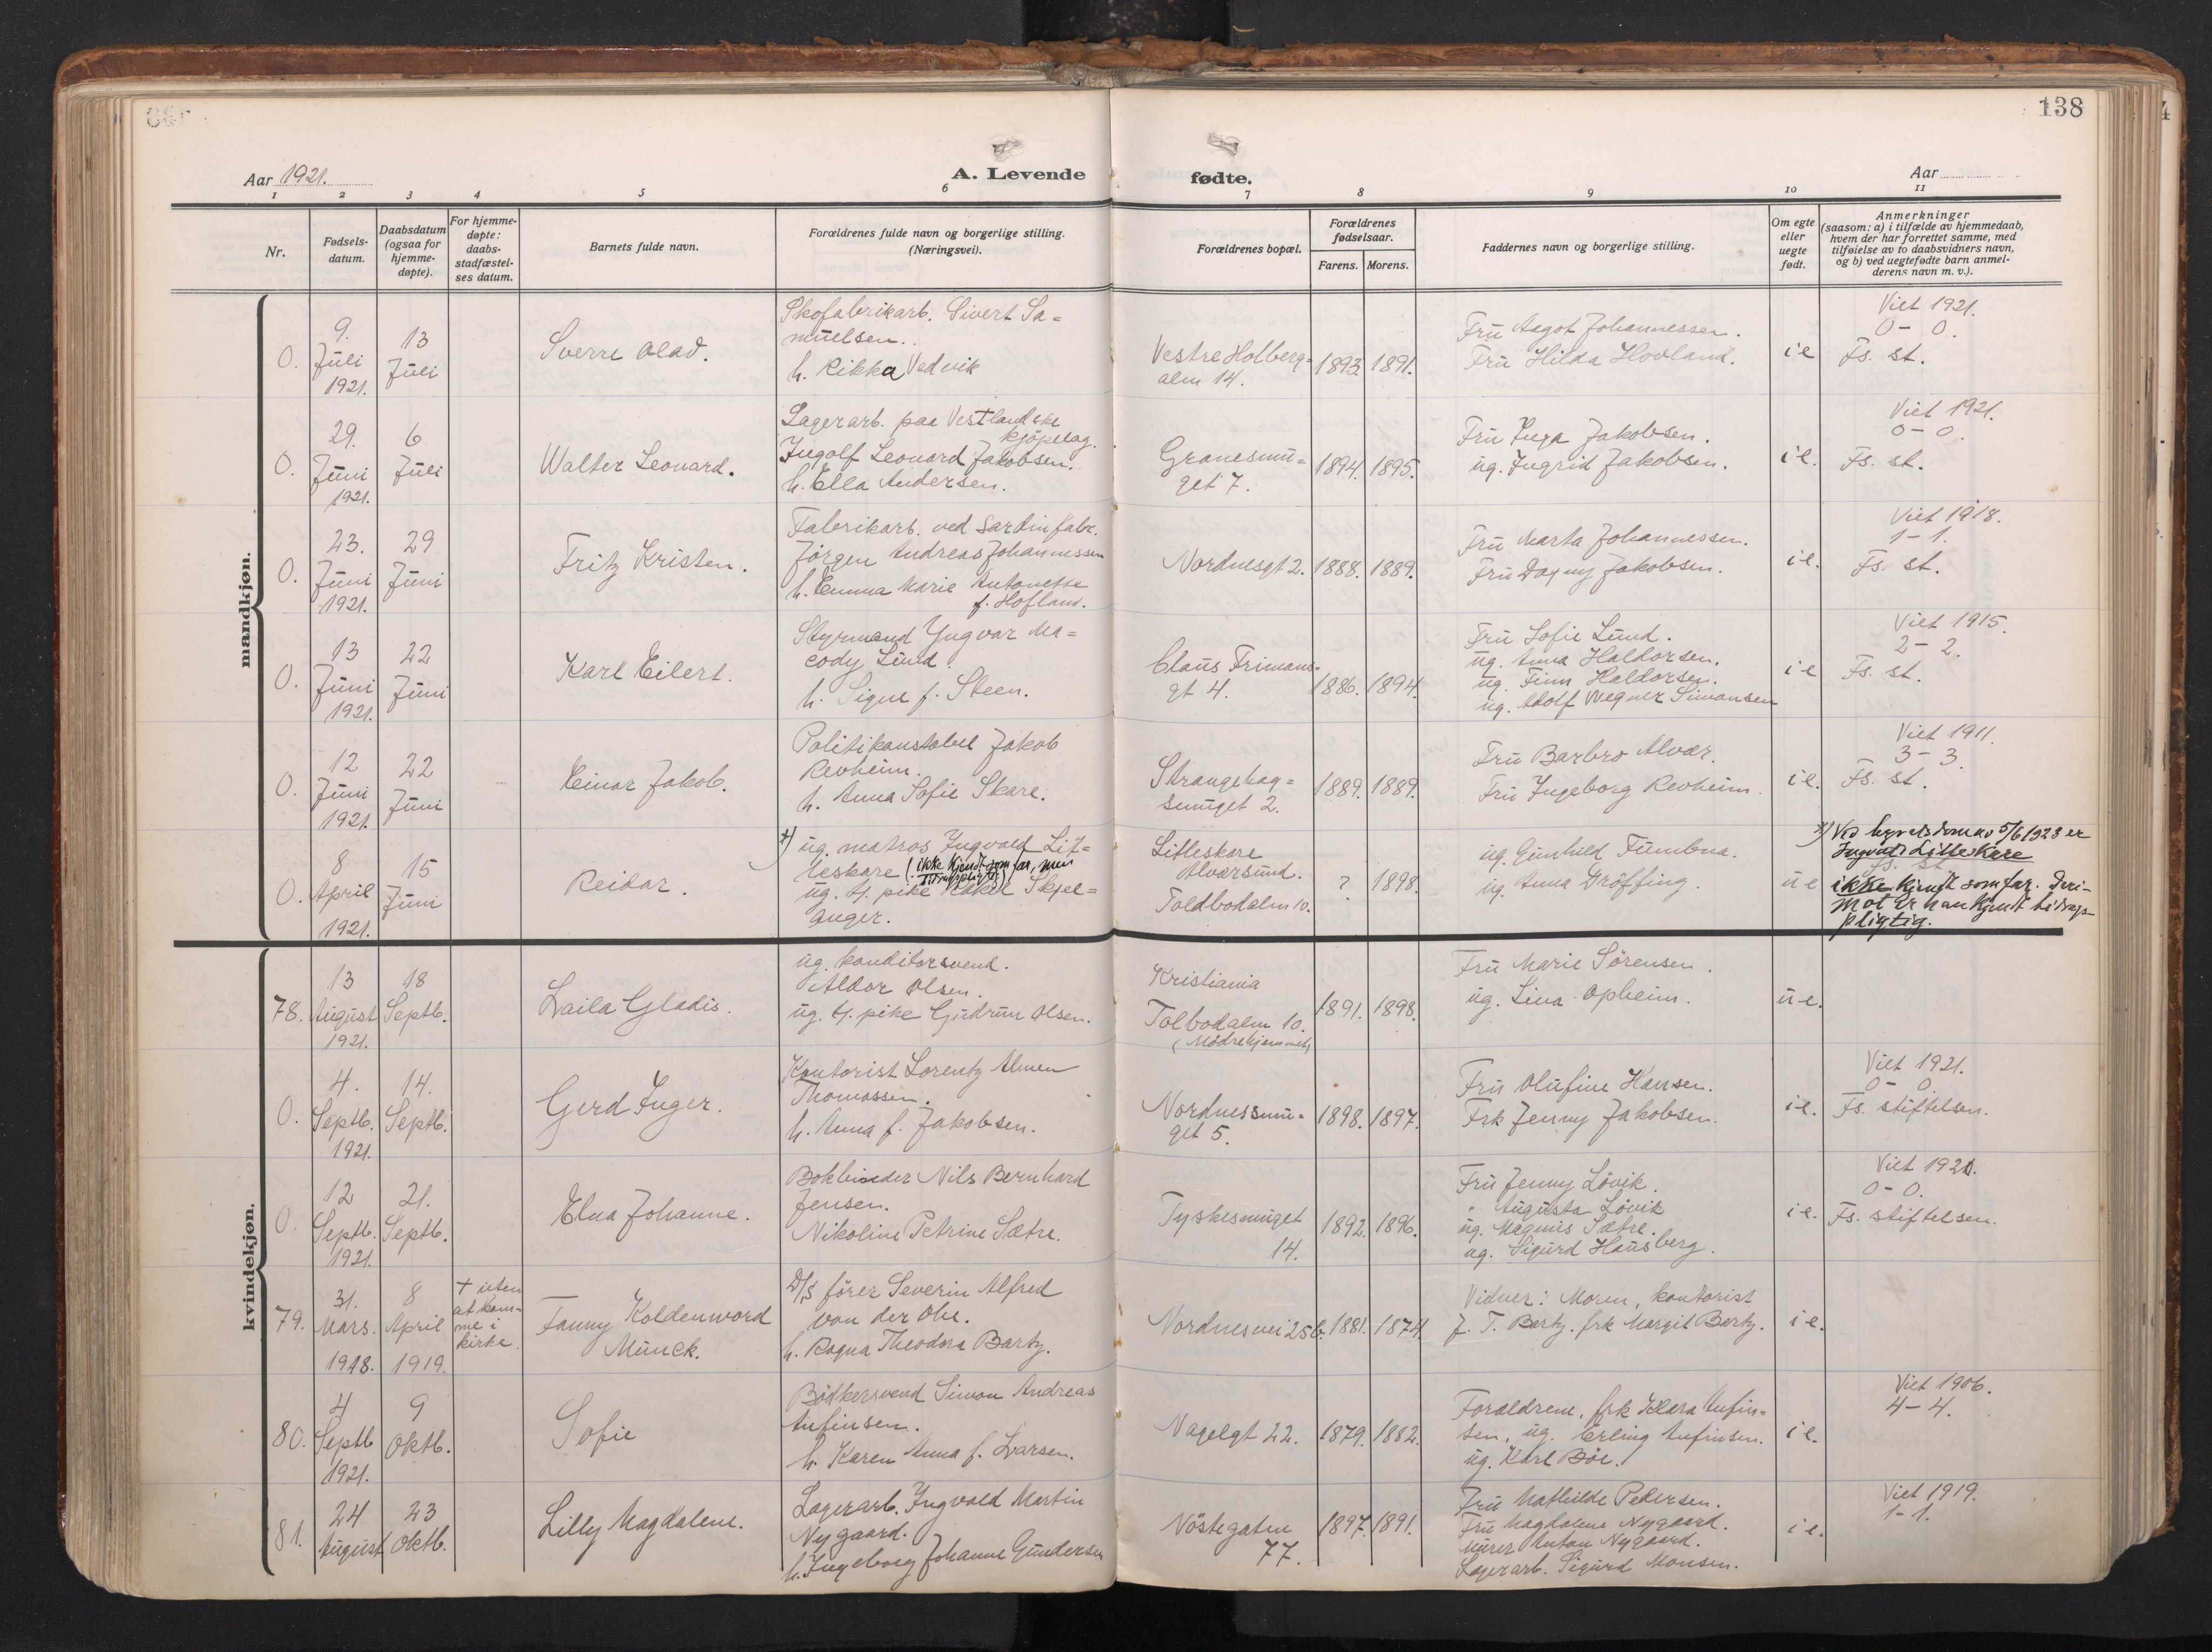 138
Aar 1921.
A. Levende
fødte.
Aar
1
2
3
4
5
6
7
8
9
10
11
Nr.
Fødsels-
datum.
Daabsdatum
(ogsaa for
hjemme-
døpte).
For hjemme-
døpte:
daabs-
stadfæstel-
ses datum.
Barnets fulde navn.
Forældrenes fulde navn og borgerlige stilling.
(Næringsvei).
Forældrenes bopæl.
Forældrenes
fødselsaar.
Farens.
Morens.
Faddernes navn og borgerlige stilling.
Om egte
eller
uegte
født.
Anmerkninger
(saasom: a) i tilfælde av hjemmedaab,
hvem der har forrettet samme, med
tilføielse av to daabsvidners navn,
og b) ved uegtefødte barn anmel-
derens navn m. v.).
mandkjøn.
0.
9.
Juli
1921.
13
Juli
Sverre Olav.
Skofabrikarb. Sivert Sa=
muelsen.
h. Rikka Vedvik
Vestre Holberg=
alm 14.
1893.
1891.
Fru Aagot Johannessen.
Fru Hilda Hovland.
i e
Viet 1921.
0 - 0.
Fs. st.
0.
29.
Juni
1921.
6
Juli
Walter Leonard.
Lagerarb. paa Vestlandske
kjøpelag.
Ingolf Leonard Jakobsen.
h. Ella Andersen.
Granesmu=
get 7.
1894.
1895.
Fru Inga Jakobsen.
ug. Ingrid Jakobsen.
i e.
Viet 1921.
0 - 0.
Fs. st.
0.
23.
Juni
1921.
29
Juni
Fritz Kristen.
Fabrikarb. ved Sardinfabr.
Jørgen Andreas Johannessen
h. Emma Marie Antonette
f. Hofland.
Nordnesgt 2.
1888.
1889.
Fru Marta Johannessen.
Fru Dagny Jakobsen.
i e.
Viet 1918.
1 - 1.
Fs. st.
0.
13
Juni
1921.
22
Juni
Karl Eilert.
Styrmand Yngvar Ma=
cody Lund.
h. Signe f. Steen.
Claus Frimans=
gt 4.
1886.
1894.
Fru Sofie Lund.
ug. Anna Haldorsen.
ug. Finn Haldorsen.
ug. Adolf Wegner Simonsen
i e
Viet 1915.
2 - 2.
Fs. st.
0.
12
Juni
1921.
22
Juni
Einar Jakob.
Politikonstabel Jakob
Revheim.
h. Anna Sofie Skare.
Strangehag=
smuget 2.
1889.
1889.
Fru Barbro Alvær.
Fru Ingeborg Revheim.
i e.
Viet 1911.
3 - 3.
Fs. st.
0.
8
April
1921.
15
Juni
Reidar.
x) ug. matros Ingvald Lit=
leskare (ikke kjendt som far, men
bidragspligtig)
ug. tj. pike Rakel Skjel=
anger.
Litleskare
Alversund.
Toldbodalm 10.
?
1898.
ug. Gunhild
ug. Anna Drøffing.
u e
x) Ved herredsdom av 5/6 1923 er
Ingvald Litleskare
ikke kjendt som far. Deri-
mot er han kjendt bidrags-
pligtig.
kvindekjøn.
78.
13
August
1921.
18
Septb.
Laila Gladis.
ug. konditorsvend.
Aldor Olsen.
ug. tj. pike Gudrun Olsen.
Kristiania
Tolbodalm 10.
(Mødrehjemmet)
1891.
1898.
Fru Marie Sørensen.
ug. Lina Opheim.
u e.
0.
4.
Septb.
1921.
14.
Septb.
Gerd Inger.
Kontorist Lorentz Almen
Thomassen.
h. Anna f. Jakobsen.
Nordnessmu=
get 5.
1898.
1897.
Fru Olufine Hansen.
Frk Jenny Jakobsen.
i e.
Viet 1921.
0 - 0.
Fs. stiftelsen.
0.
12
Septb.
1921.
21.
Septb.
Elna Johanne.
Bokbinder Nils Bernhard
Jensen.
Nikoline Petrine Sætre.
Tyskesmuget
14.
1892.
1896.
Fru Jenny Løvik.
" Augusta Løvik
ug. Magnus Sætre.
ug. Sigurd Hausberg.
i e.
Viet 1921.
0 - 0.
Fs. stiftelsen.
79.
31.
Mars.
1918.
8
April
1919.
+ uten
at kom-
me i
kirke.
Fanny Koldenword
Munck.
D/S fører Severin Alfred
von der Ohe.
h. Ragna Theodora Bartz.
Nordnesvei 25b.
1881.
1874.
Vidner: Moren, kontorist
J. T. Bertz. frk Margit Bertz.
i e.
80.
4
Septb
1921.
9
Oktb.
Sofie
Bødkersvend Simon Andreas
Anfinsen.
h. Karen Anna f. Larsen.
Nagelgt 22.
1879.
1882.
Forældrene, frk Klara Anfin=
sen, ug. Erling Anfinsen.
ug. Karl Bøe.
i e.
Viet 1906.
4 - 4.
81.
24
August
23
Oktb.
Lilly Magdalene.
Lagerarb. Ingvald Martin
Nygaard.
h. Ingeborg Johanne Gundersen
Nøstegaten
77.
1897.
1891.
Fru Mathilde Pedersen.
Fru Magdalene Nygaard.
Murer Anton Nygaard.
Lagerarb. Sigurd Monsen.
i e.
Viet 1919.
1 - 1.